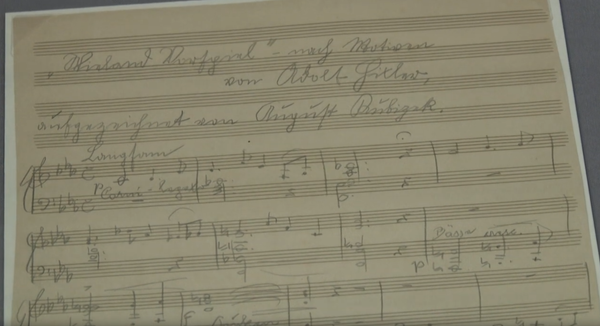 „Wieland Vorspiel" – nach Motiven
von Adolf Hitler,
aufgezeichnet von August Kubizek.
Langsam
p
Bässe
p